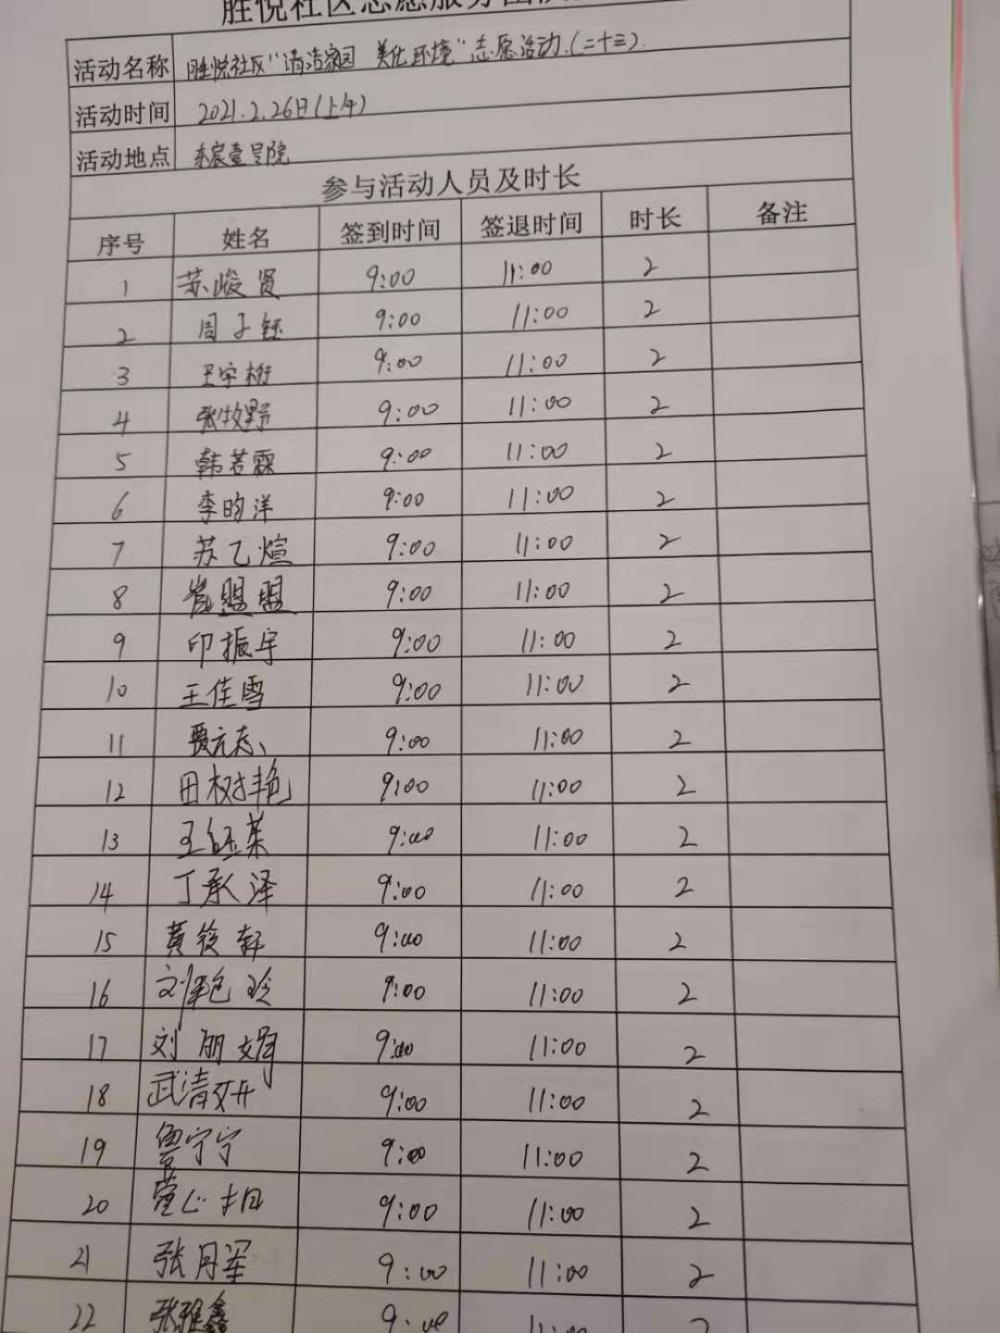 胜悦社区志愿服务
活动名称 胜悦社区“清洁家园 美化环境”志愿活动.(二十三)
活动时间 2021.2.26日(上午)
活动地点 东宸壹号院
参与活动人员及时长
序号 姓名 签到时间 签退时间 时长 备注
1 苏峻贤 9:00 11:00 2
2 周子钰 9:00 11:00 2
3 王宇桁 9:00 11:00 2
4 张牧野 9:00 11:00 2
5 韩若霖 9:00 11:00 2
6 李昀洋 9:00 11:00 2
7 苏乙煊 9:00 11:00 2
8 9:00 11:00 2
9 印振宇 9:00 11:00 2
10 王佳雪 9:00 11:00 2
11 贾元志 9:00 11:00 2
12 田树艳 9:00 11:00 2
13 王钰茱 9:00 11:00 2
14 丁承泽 9:00 11:00 2
15 黄筱轩 9:00 11:00 2
16 刘艳玲 9:00 11:00 2
17 刘丽娟 9:00 11:00 2
18 武清妍 9:00 11:00 2
19 鲁宁宁 9:00 11:00 2
20 9:00 11:00 2
21 张月军 9:00 11:00 2
22 张雅鑫 9:00 11:00 2